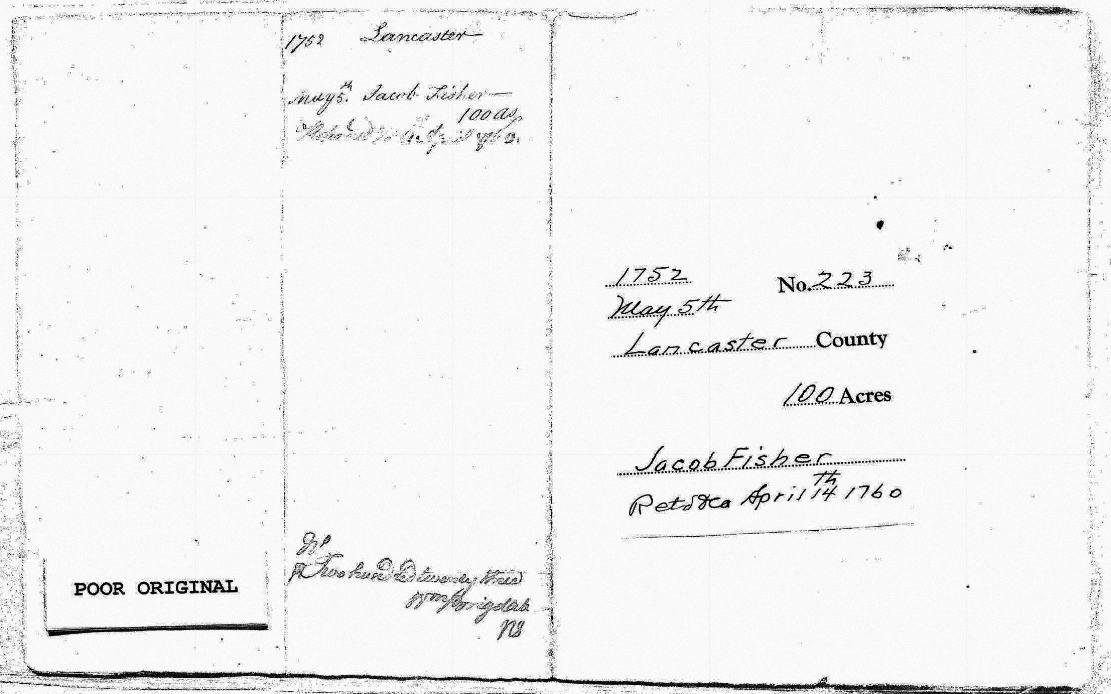 1752 Lancaster
May 5th. Jacob Fisher
100 as
April 1760.
Two hundred twenty three
POOR ORIGINAL
1752 No. 223
May 5th
Lancaster County
100 Acres
Jacob Fisher
Retd &ca April 14th 1760